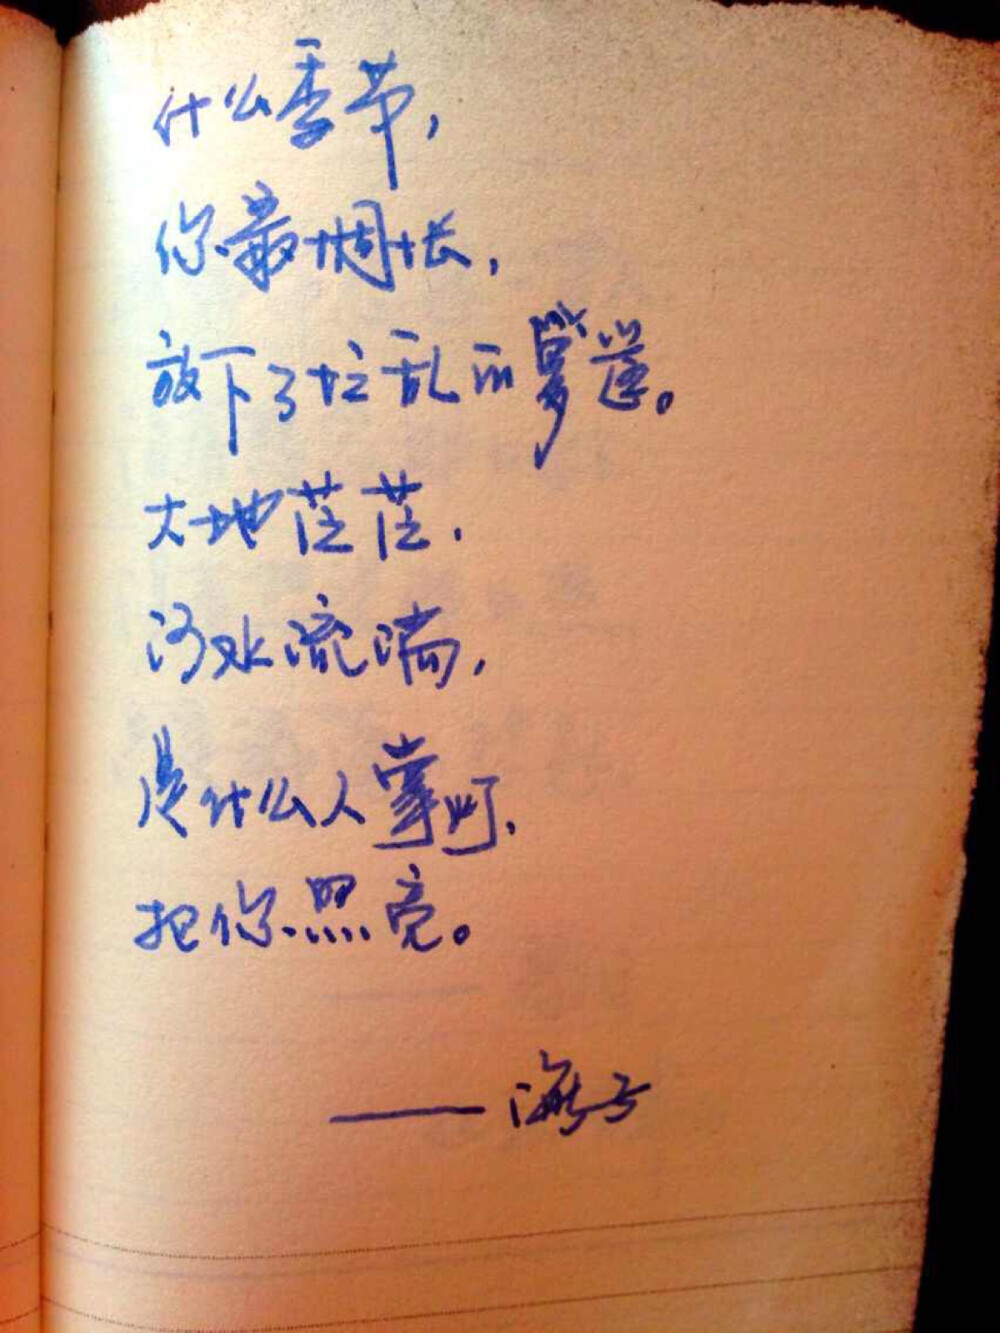 什么季节，
你最惆怅，
放下了忙乱的箩筐。
大地茫茫，
河水流淌，
是什么人掌灯，
把你照亮。
——海子